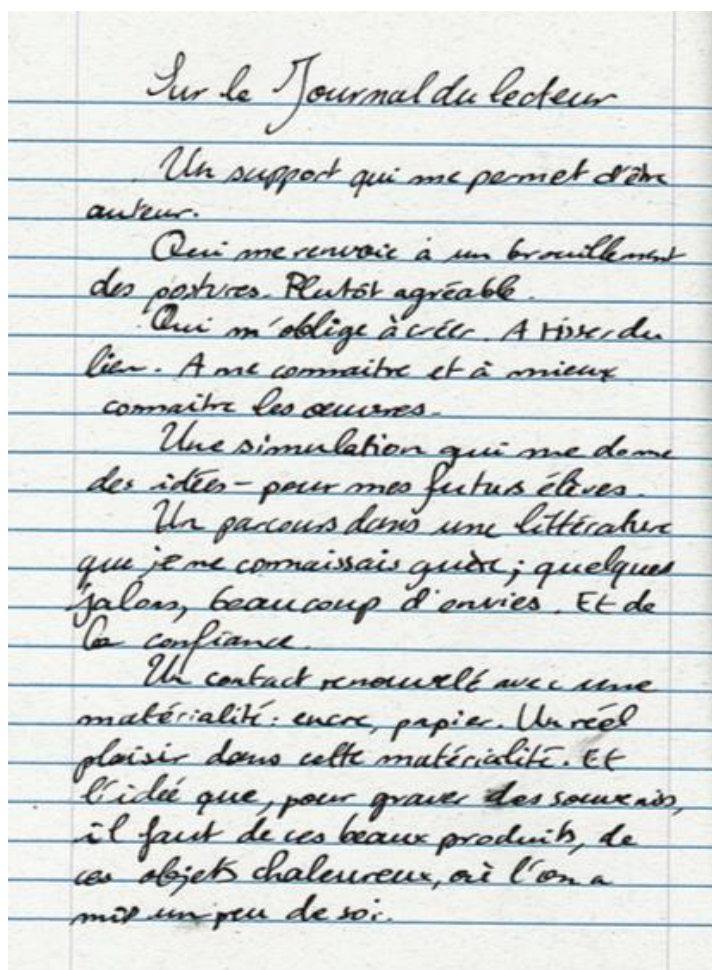 Sur le Journal du lecteur
Un support qui me permet d'être
auteur.
Qui me renvoie à un brouillement
des postures. Plutôt agréable.
Qui m'oblige à créer. A tisser du
lien. A me connaitre et à mieux
connaitre les œuvres.
Une simulation qui me donne
des idées - pour mes futurs élèves.
Un parcours dans une littérature
que je ne connaissais guère ; quelques
jalons, beaucoup d'envies. Et de
la confiance.
Un contact renouvelé avec une
matérialité : encre, papier. Un réel
plaisir dans cette matérialité. Et
l'idée que, pour graver des souvenirs,
il faut de ces beaux produits, de
ces objets chaleureux, où l'on a
mis un peu de soi.